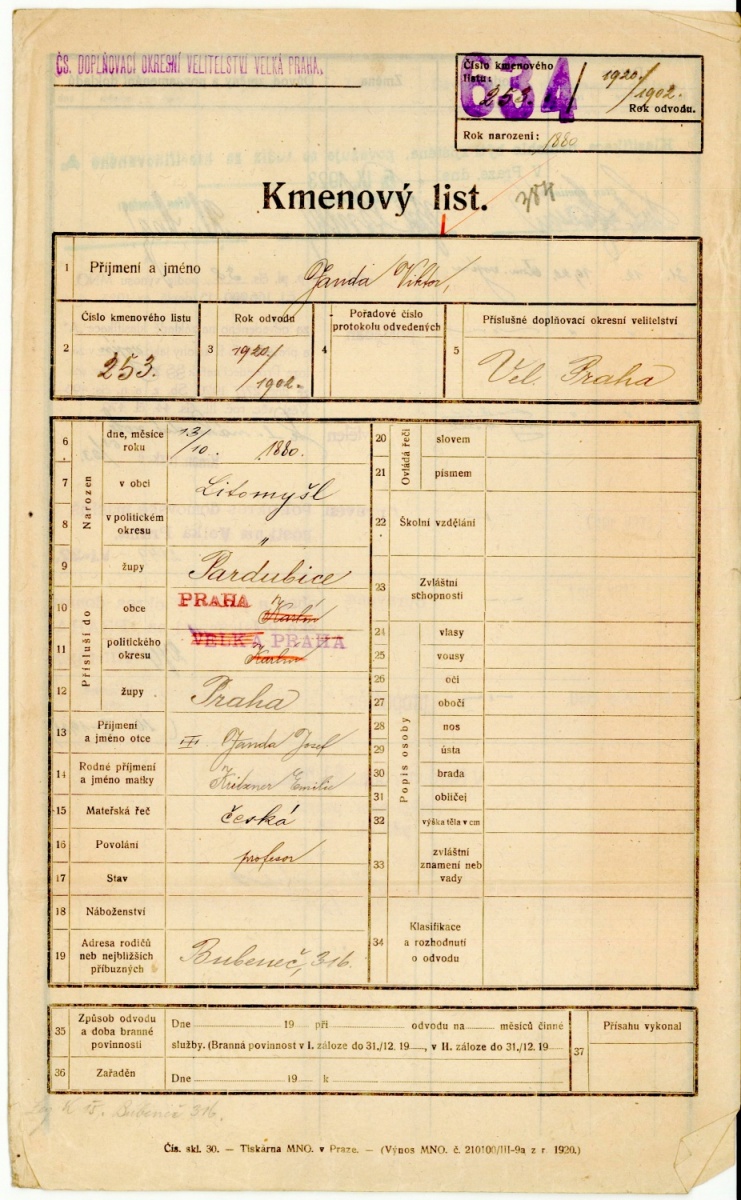 ČS. DOPLŇOVACÍ OKRESNÍ VELITELSTVÍ VELKÁ PRAHA.
634
Číslo kmenového listu: 253. / 1920./1902.
Rok odvodu.
Rok narození: 1880
Kmenový list.
1 Příjmení a jméno Janda Viktor,
2 Číslo kmenového listu 253.
3 Rok odvodu 1920./1902.
4 Pořadové číslo protokolu odvedených
5 Příslušné doplňovací okresní velitelství Vel. Praha
Narozen
6 dne, měsíce roku 13/10. 1880.
7 v obci Litomyšl
8 v politickém okresu "
9 župy Pardubice
Přísluší do
10 obce PRAHA Karlín
11 politického okresu VELKÁ PRAHA Karlín
12 župy Praha
13 Příjmení a jméno otce Janda Josef
14 Rodné příjmení a jméno matky Emilie
15 Mateřská řeč česká
16 Povolání profesor
17 Stav
18 Náboženství
19 Adresa rodičů neb nejbližších příbuzných Bubeneč, 316.
Ovládá řeči
20 slovem
21 písmem
22 Školní vzdělání
23 Zvláštní schopnosti
Popis osoby
24 vlasy
25 vousy
26 oči
27 obočí
28 nos
29 ústa
30 brada
31 obličej
32 výška těla v cm
33 zvláštní znamení neb vady
34 Klasifikace a rozhodnutí o odvodu
35 Způsob odvodu a doba branné povinnosti
Dne 19 při odvodu na měsíců činné
služby. (Branná povinnost v I. záloze do 31./12. 19 , v II. záloze do 31./12. 19
36 Zařaděn
Dne 19 k
37 Přísahu vykonal
Bubeneč 316.
Čís. skl. 30. — Tiskárna MNO. v Praze. — (Výnos MNO. č. 210100/III-9a z r. 1920.)